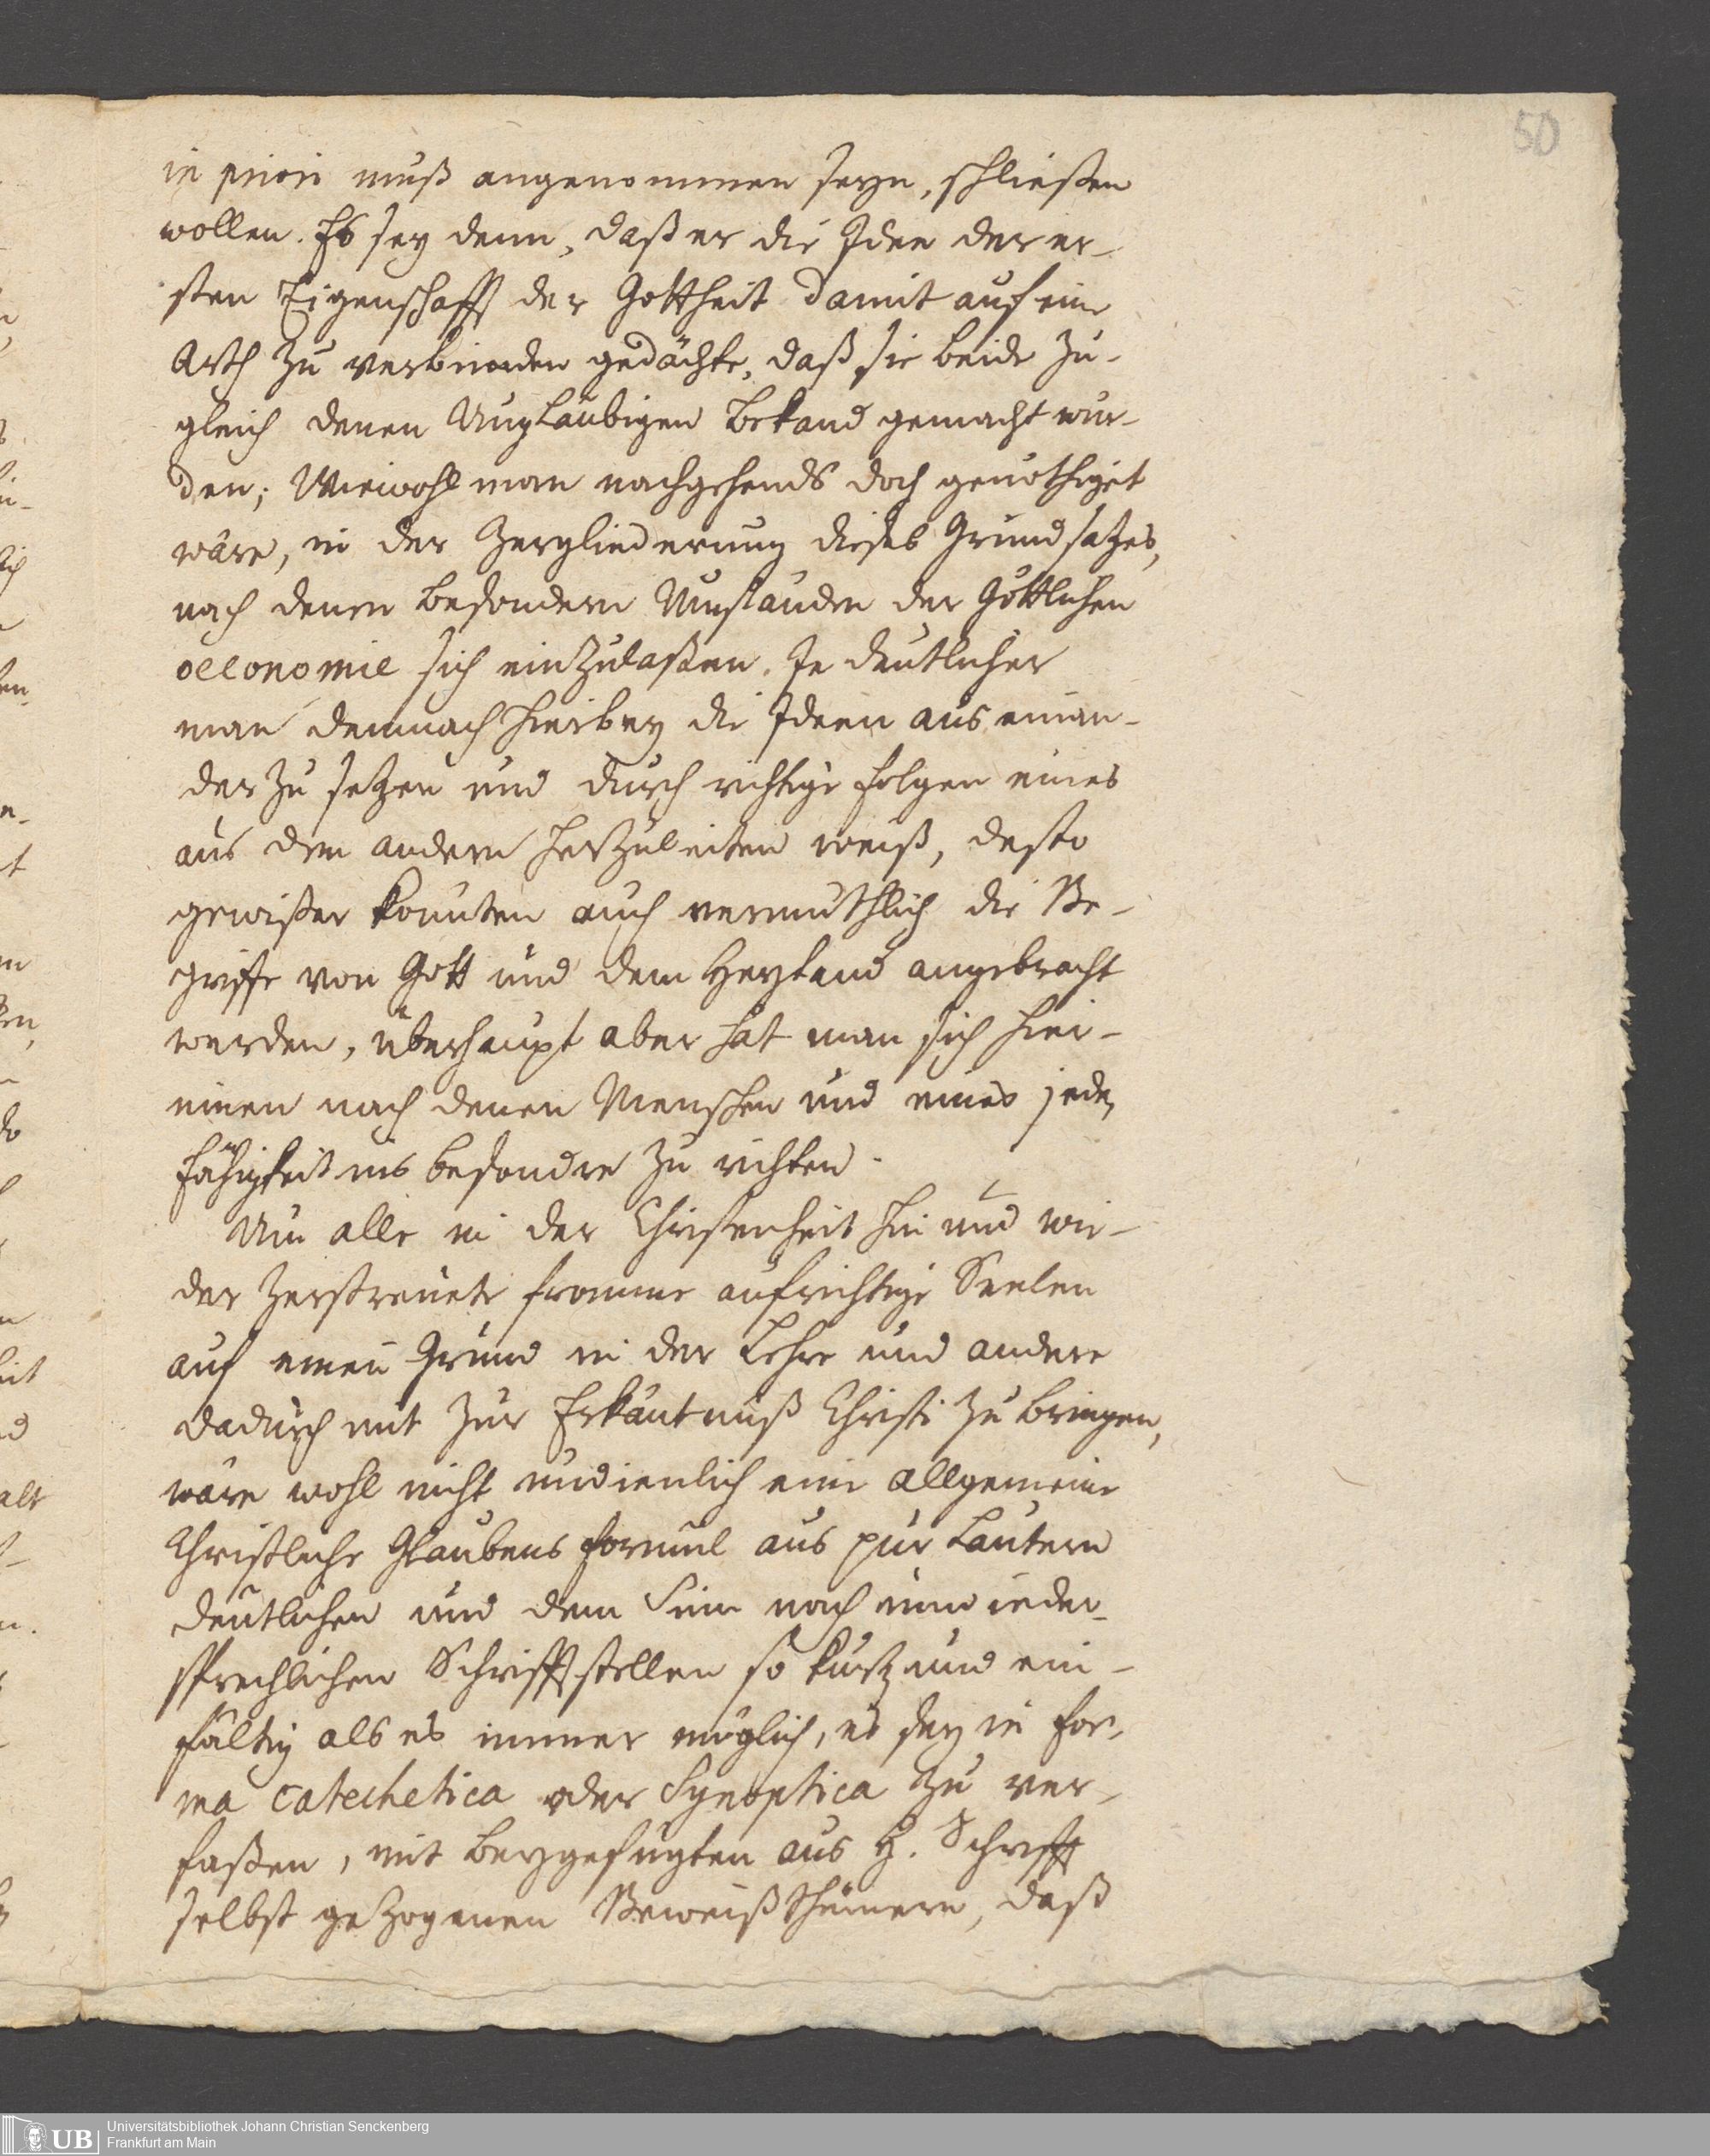 50
in priori muß angenommen seyn, schließen
wollen. Es sey denn, daß er die Idee der er-
sten Eigenschafft der Gottheit damit auf eine
Arth zu verbinden gedächte, daß sie beide zu-
gleich denen Ungläubigen bekand gemacht wur-
den; Wiewohl man nachgehends doch genöthiget
wäre, in der Zergliederung dieses Grundsatzes,
nach denen besondern Umständen der Göttlichen
oeconomie sich einzulaßen. Je deutlicher
man demnach hierbey die Ideen aus einan-
der zu setzen und durch richtige folgen eines
aus dem andern herzuleiten weiß, desto
gewißer könnten auch vermuthlich die Be-
griffe von Gott und dem Heyland angebracht
werden, überhaupt aber hat man sich hier-
innen nach denen Menschen und eines jeden
Fähigkeit ins besondre zu richten.
Um alle in der Christenheit hin und wie-
der zerstreuete fromme aufrichtige Seelen
auf einen Grund in der Lehre und andere
dadurch mit zur Erkäntniß Christi zu bringen,
wäre wohl nicht undienlich eine allgemeine
Christliche Glaubens formul aus pur lautern
deutlichen und dem Sinn nach unwieder-
sprechlichen Schrifftstellen so kurtz und ein-
fältig als es immer möglich, es sey in for-
ma catechetica oder Synoptica zu ver-
faßen, mit beygefügten aus H. Schrifft
selbst gezogenen Beweißthümern, daß
n
s
-
en.
t
en,
do
it
d
alt
UB Universitätsbibliothek Johann Christian Senckenberg
Frankfurt am Main